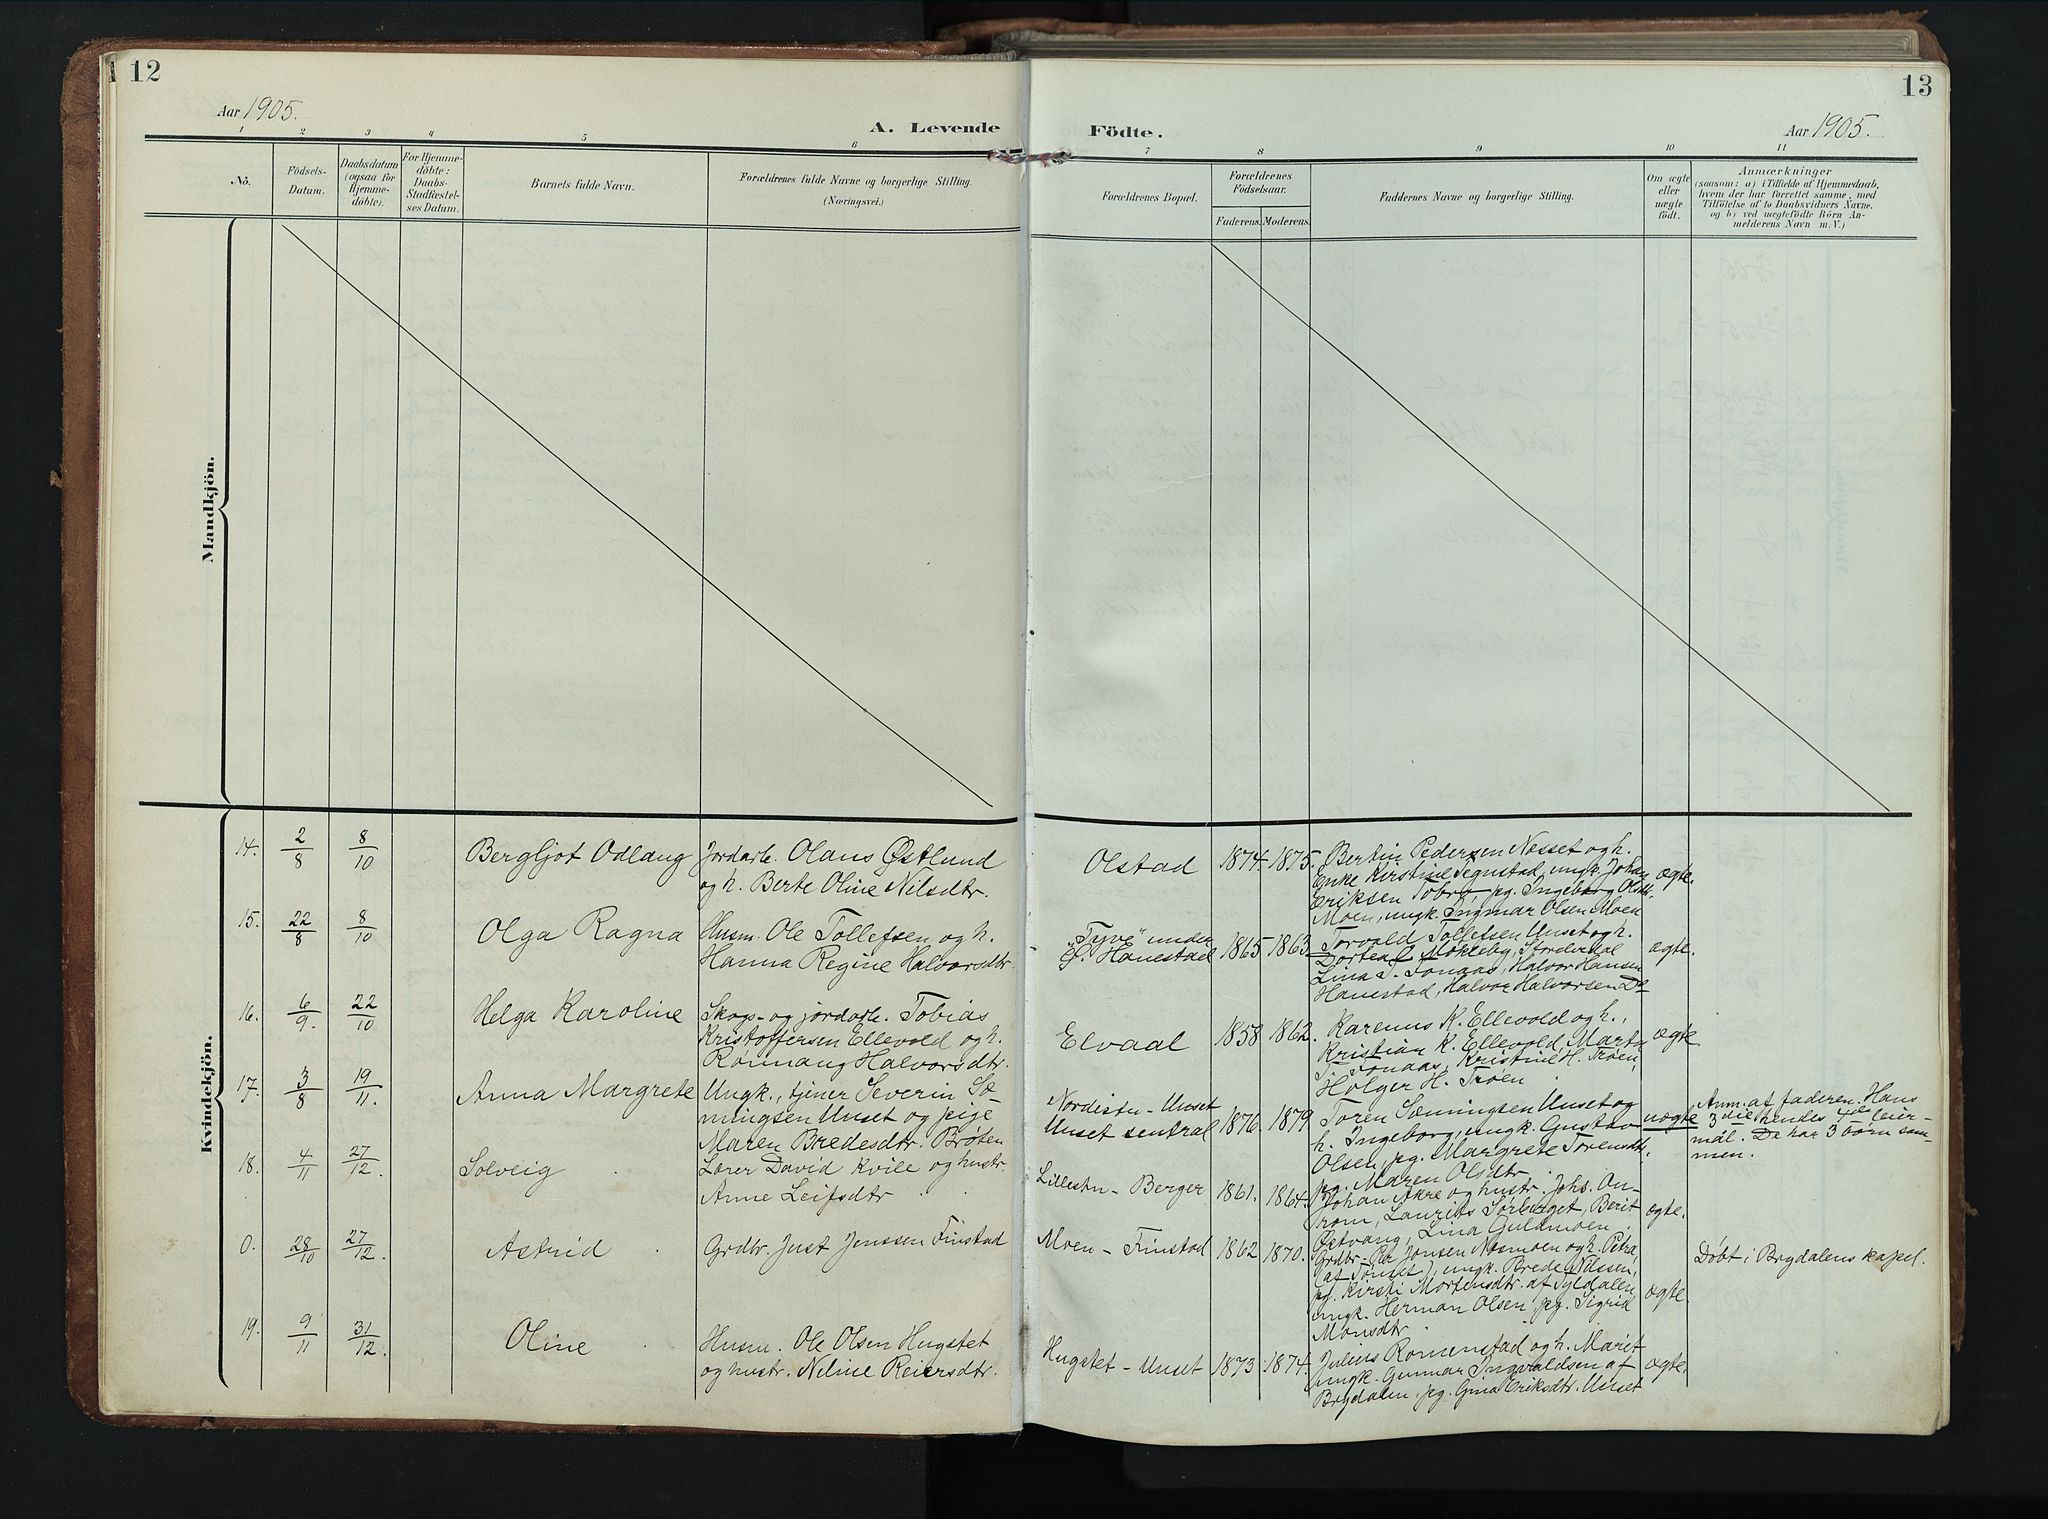 12
Aar 1905.
A. Levende
1
2
3
4
5
6
No.
Födsels-
Datum.
Daabsdatum
(ogsaa for
Hjemme-
döbte).
For Hjemme-
döbte:
Daabs-
Stadfæstel-
ses Datum.
Barnets fulde Navn.
Forældrenes fulde Navne og borgerlige Stilling.
(Næringsvei.)
Mandkjön.
Kvindekjön.
14. 2/8 8/10 Bergljot Odlaug Jordarb. Olaus Østlund
og h. Berte Oline Nilsdtr.
15. 22/8 8/10 Olga Ragna Husm. Ole Tollefsen og h.
Hanna Regine Halvorsdtr.
16. 6/9. 22/10 Helga Karoline Skogs- og jordarb. Tobias
Kristoffersen Ellevold og h.
Rønnaug Halvorsdtr.
17. 3/8 19/11. Anna Margrete Ungk., tjener Severin Sæ-
mingsen Unset og pige
Maren Bredesdtr. Brøten
18. 4/11 27/12. Solveig Lærer David Kvile og hustr.
Anne Leifsdtr.
0. 28/10 27/12. Astrid Grdbr. Just Jenssen Finstad
19. 9/11 31/12. Oline Husm. Ole Olsen Hugstet
og hustr. Neline Reiersdtr.
13
Födte.
Aar 1905.
7
8
9
10
11
Forældrenes Bopæl.
Forældrenes
Födselsaar.
Faderens. Moderens.
Faddernes Navne og borgerlige Stilling.
Om ægte
eller
uægte
födt.
Anmærkninger
(saasom: a) i Tilfælde af Hjemmedaab,
hvem der har forrettet samme, med
Tilföielse af to Daabsvidners Navne,
og b) ved uægtefödte Börn An-
melderens Navn m. V.)
Olstad 1874. 1875. Bertin Pedersen Nesset og h.
Enke Kirstine Tegnstad, ungk. Johan ægte.
Eriksen Tobro, pg. Ingeborg
Moen, ungk. Ingmar Olsen Moen
"Tyve" under
Ø. Hanestad 1865 1863. Torvald Tollefsen Unset og h. ægte.
Dortea Møkleby,
Lina T. Tonaas, Halvor Hansen
Hanestad, Halvor Halvorsen Do
Elvaal 1858 1862. Karenus K. Ellevold og h., ægte
Kristian K. Ellevold, Marta
T. Tonaas, Kristine H. Trøen,
Holger H. Trøen.
Nordistu - Unset
Unset sentral 1876. 1879 Toren Sæmingsen Unset og uægte
h. Ingeborg, ungk. Gustav
Olsen, pg. Margrete Torensdtr.
pg. Maren Olsdtr.
Anm. af faderen. Hans
3die hendes 4de leier-
mål. De har 3 børn sam-
men.
Lillestu - Berger 1861. 1864. Johan Akre og hustr. Johs. An-
trom, Laurits Sørberget, Berit ægte.
Østvang, Lina Guldmoen.
Moen - Finstad 1862 1870. Grdbr. Per Jonsen Næsmoen og h. Petra
(af Tønset), ungk. Brede Nilssen,
pg. Kirsti Mortensdtr. af Tyldalen, ægte.
ungk. Herman Olsen, pg. Sigrid
Monsdtr.
Døbt i Brydalens kapel.
Hugstet - Unset 1873 1874. Julius Romenstad og h. Marit
ungk. Gunnar Ingvaldsen af ægte.
Brydalen, pg. Gina Eriksdtr. Unset